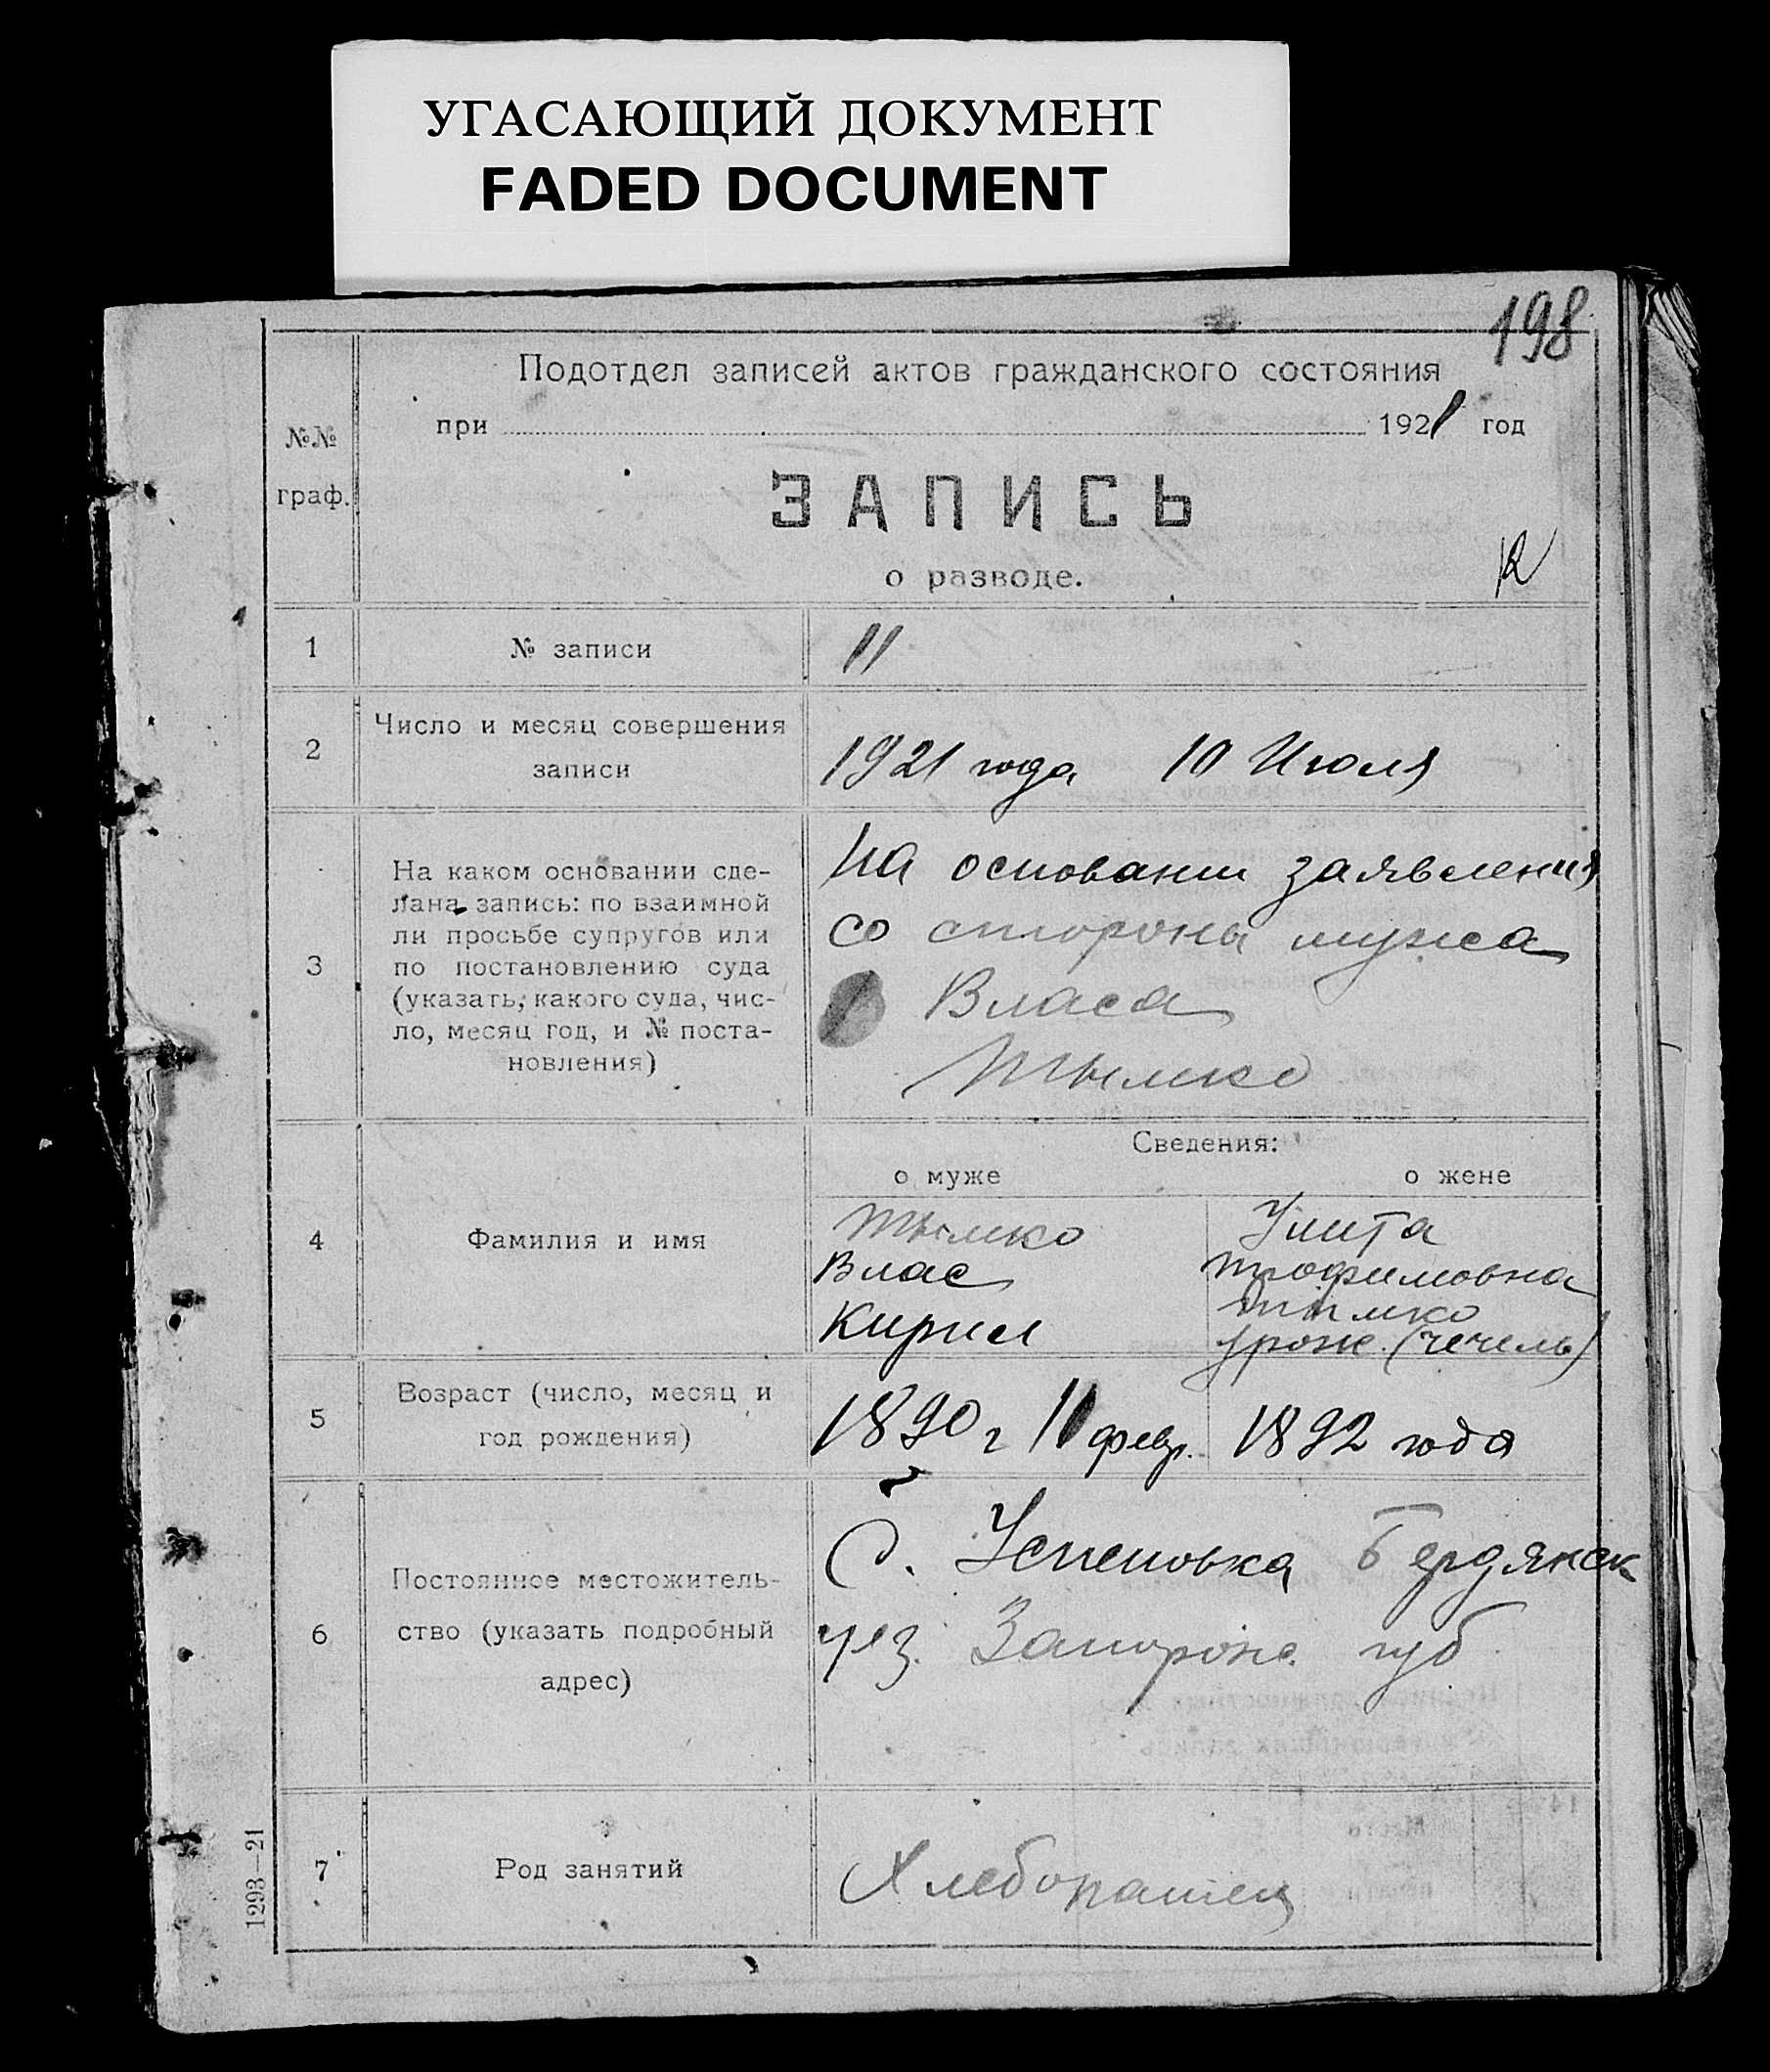 УГАСАЮЩИЙ ДОКУМЕНТ
FADED DOCUMENT
198
№№
граф.
Подотдел записей актов гражданского состояния
при 1921 год
ЗАПИСЬ
о разводе.
12
1
№ записи
11
2
Число и месяц совершения
записи
1921 года 10 Июля
3
На каком основании сде-
лана запись: по взаимной
ли просьбе супругов или
по постановлению суда
(указать, какого суда, чис-
ло, месяц год, и № поста-
новления)
На основании заявления
со стороны мужа
Власа
Тымко
Сведения:
о муже
о жене
4
Фамилия и имя
Тымко
Влас
Кирил
Улита
Трофимовна
Тымко
урож. (Чечель)
5
Возраст (число, месяц и
год рождения)
1890 г 11 февр.
1892 года
6
Постоянное местожитель-
ство (указать подробный
адрес)
С. Успеновка Бердянск
уез. Запорож. губ
7
Род занятий
Хлебопашец
1293—21